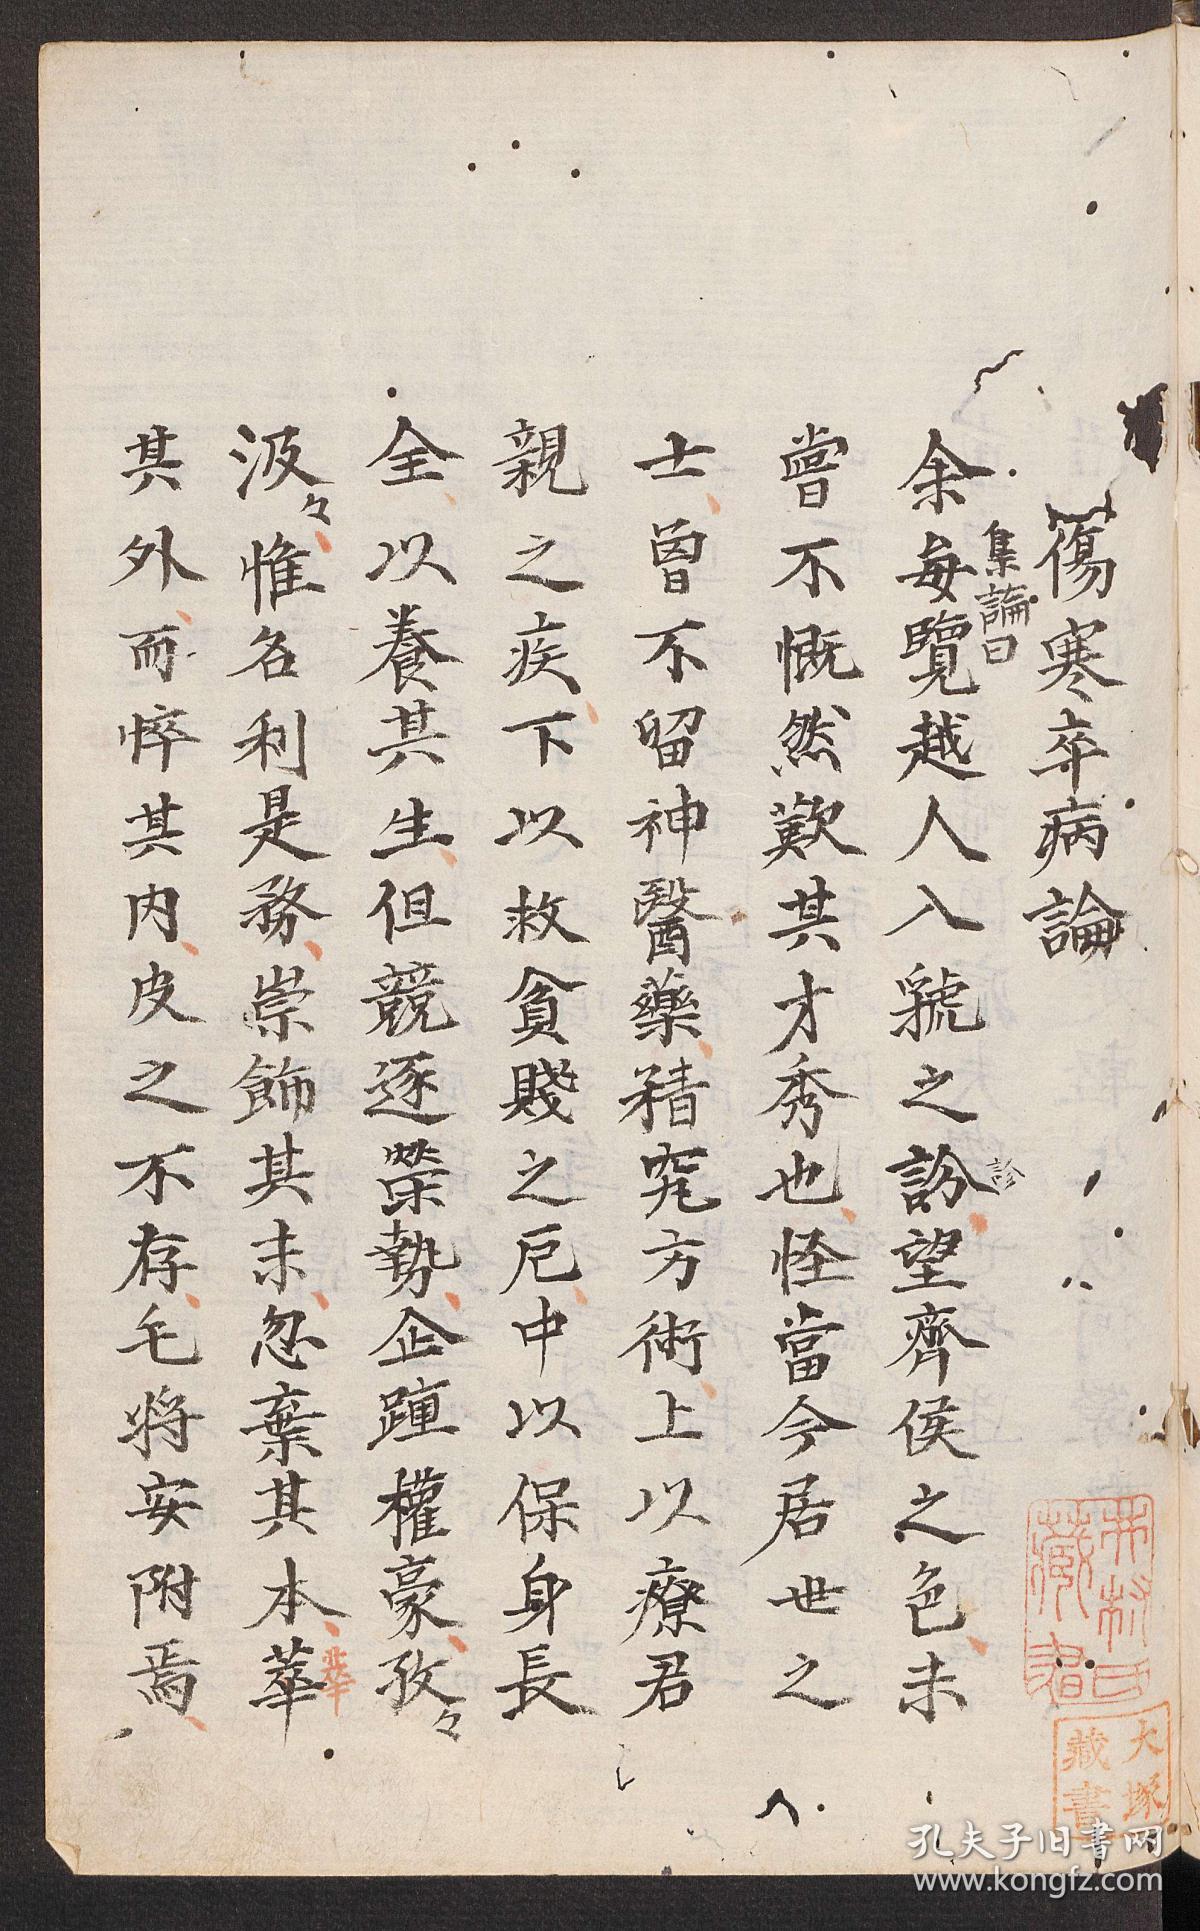 傷寒卒病論
集論曰
余每覽越人入虢之訡望齊侯之色未
診
嘗不慨然歎其才秀也怪當今居世之
士曾不留神醫藥精究方術上以療君
親之疾下以救貧賤之厄中以保身長
全以養其生但競逐榮勢企踵權豪孜々
汲々惟名利是務崇飾其末忽棄其本華
華
其外而悴其内皮之不存毛將安附焉
大塚
藏書
孔夫子旧书网
www.kongfz.com